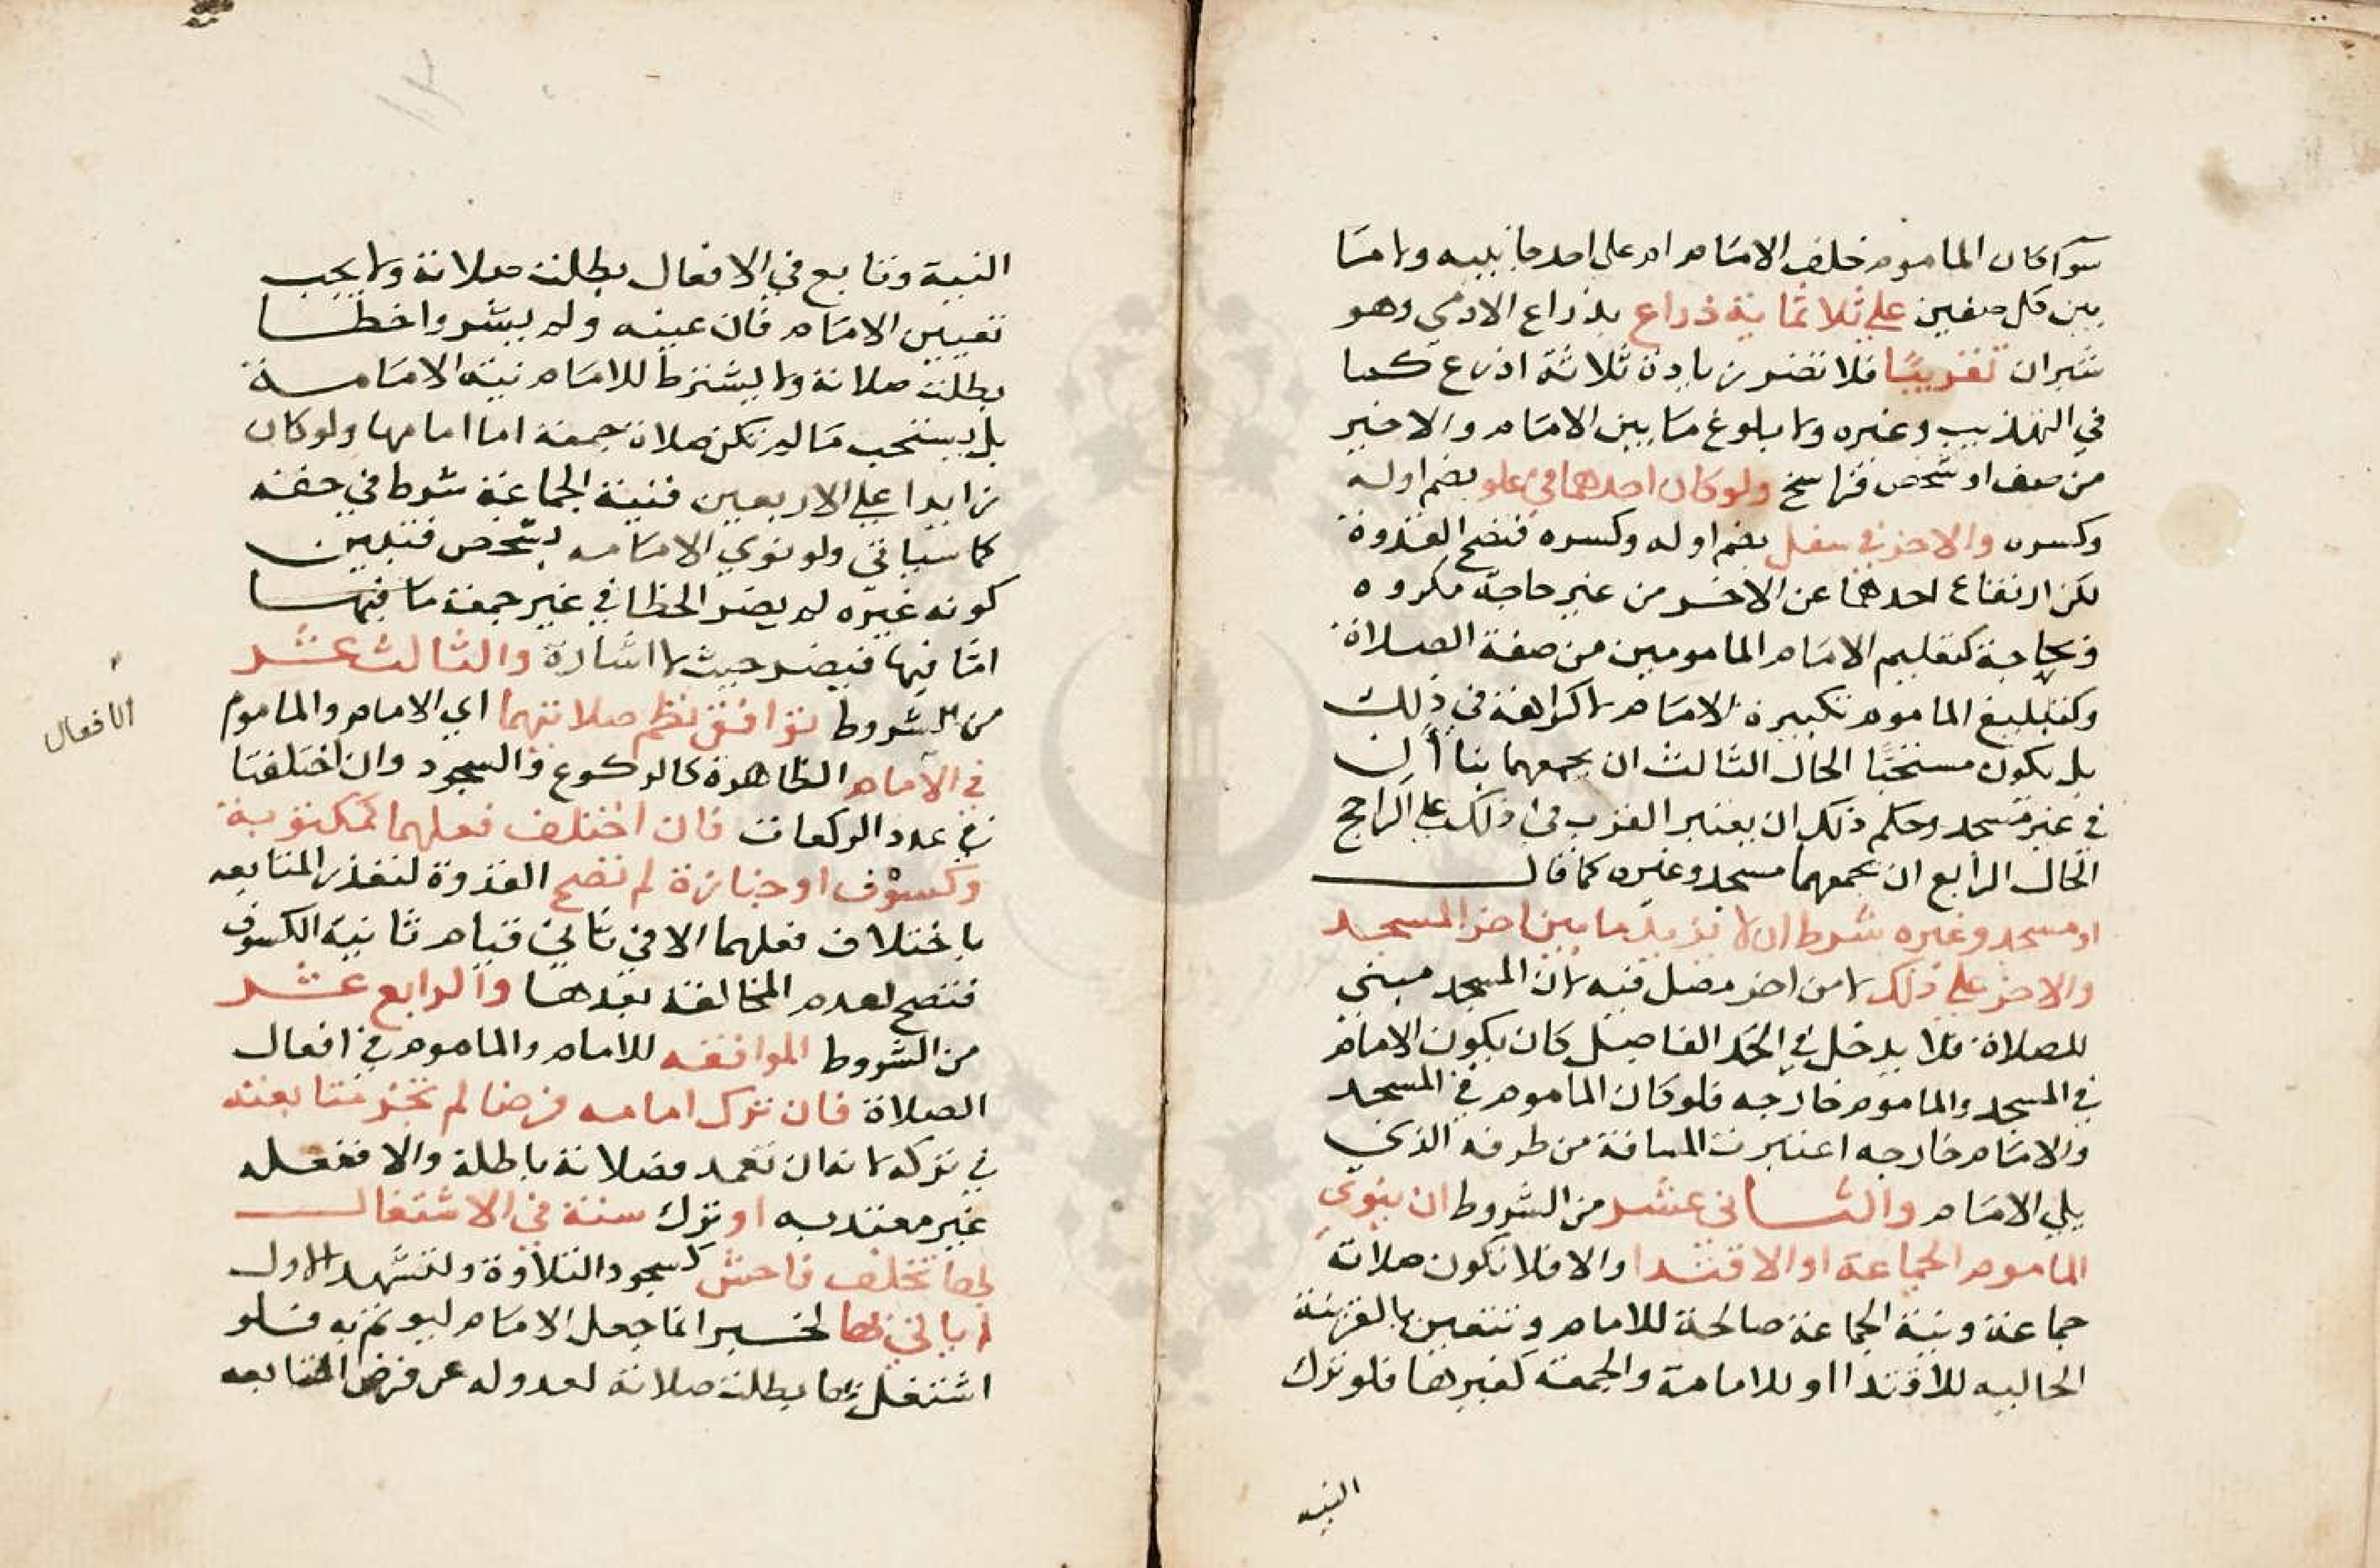 سوآ كان الماموم خلف الامام ام على احد جانبيه ولا ما
بين كل صفين على ثلاثمائة ذراع بذراع الادمي وهو
شبران تقريبًا فلا تضر زيادة ثلاثة اذرع كما
في التهذيب وغيره ولا بلوغ ما بين الامام والاخير
من صف او شخص فراسخ ولو كان احدهما في علو بضم اوله
وكسره والاخر في سفل بضم اوله وكسره فتصح القدوة
لكن ارتفاع احدهما عن الاخر من غير حاجة مكروه
ولحاجة كتعليم الامام المامومين من صفة الصلاة
وكتبليغ الماموم تكبيرة الامام لا كراهة في ذلك
بل يكون مستحبًا الحال الثالث ان يجمعهما بناآن
في غير مسجد وحكم ذلك ان يعتبر القرب في ذلك على الراجح
الحال الرابع ان يجمعهما مسجد وغيره كما قال
او مسجد وغيره شرط ان لا يزيد ما بين اخر المسجد
والاخر على ذلك لا من اخر مصل فيه لان المسجد مبني
للصلاة فلا يدخل في الحد الفاصل كان يكون الامام
في المسجد والماموم خارجه فلو كان الماموم في المسجد
والامام خارجه اعتبرت المسافة من طرفه الذي
يلي الامام والثاني عشر من الشروط ان ينوي
الماموم الجماعة او الاقتدا والا فلا تكون صلاته
جماعة ونية الجماعة صالحة للامام وتتعين بالقرينة
الحاليه للاقتدا او للامامة والجمعة كغيرها فلو ترك
النيه
النية وتابع في الافعال بطلت صلاته ولا يجب
تعيين الامام فان عينه ولم يشر واخطا
بطلت صلاته ولا يشترط للامام نية الامامة
بل يستحب ما لم تكن صلاة جمعة اما امامها ولو كان
زايدا على الاربعين فنية الجماعة شرط في حقه
كما سياتي ولو نوي الامامه بشخص فتبين
كونه غيره لم يضر الخطا في غير جمعة ما فيها
اما فيها فيضر حيث لا اشارة والثالث عشر
من الشروط توافق نظم صلاتهما اي الامام والماموم
في الامام الظاهرة كالركوع والسجود وان اختلفتا
الافعال
في عدد الركعات فان اختلف فعلهما كمكتوبة
وكسوف او جنازة لم تصح القدوة لتعذر المتابعه
باختلاف فعلهما الا في ثاني قيام ثانية الكسوف
فتصح لعدم المخالفة بعدها والرابع عشر
من الشروط الموافقه للامام والماموم في افعال
الصلاة فان ترك امامه فرضا لم تجز متابعته
في تركه لانه ان تعمد فصلاته باطلة والا ففعله
غير معتد به او ترك سنة في الاشتغال
بها تخلف فاحش كسجود التلاوة والتشهد الاول
لم ياتي بها لخبر انما جعل الامام ليوتم به فلو
اشتغل بها بطلت صلاته لعدوله عن فرض المتابعه